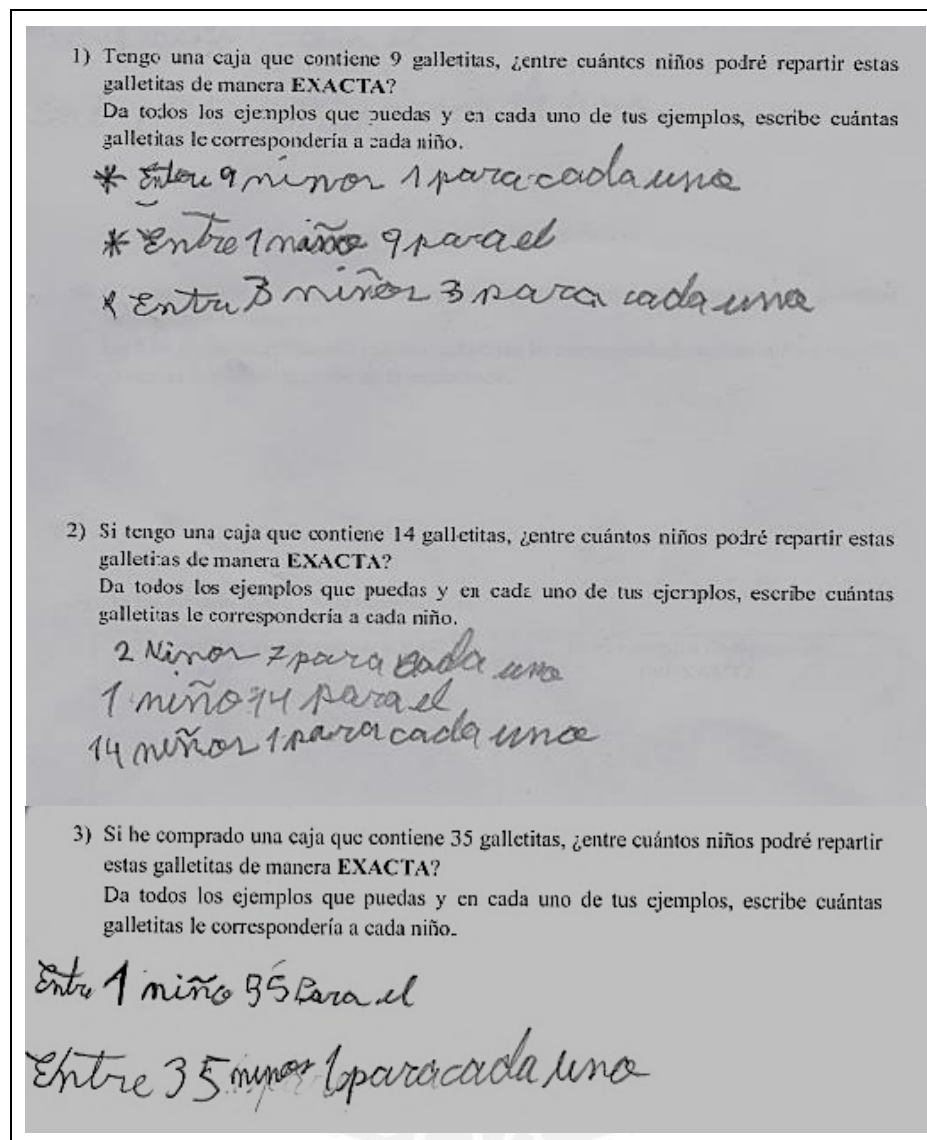 1) Tengo una caja que contiene 9 galletitas, ¿entre cuántos niños podré repartir estas
galletitas de manera EXACTA?
Da todos los ejemplos que puedas y en cada uno de tus ejemplos, escribe cuántas
galletitas le correspondería a cada niño.
* Entre 9 ninos 1 para cada uno
* Entre 1 niño 9 para el
* Entre 3 niños 3 para cada uno
2) Si tengo una caja que contiene 14 galletitas, ¿entre cuántos niños podré repartir estas
galletitas de manera EXACTA?
Da todos los ejemplos que puedas y en cada uno de tus ejemplos, escribe cuántas
galletitas le correspondería a cada niño.
2 Ninos 7 para cada uno
1 niño 14 para el
14 niños 1 para cada uno
3) Si he comprado una caja que contiene 35 galletitas, ¿entre cuántos niños podré repartir
estas galletitas de manera EXACTA?
Da todos los ejemplos que puedas y en cada uno de tus ejemplos, escribe cuántas
galletitas le correspondería a cada niño.
Entre 1 niño 35 Para el
Entre 35 ninos 1 para cada uno